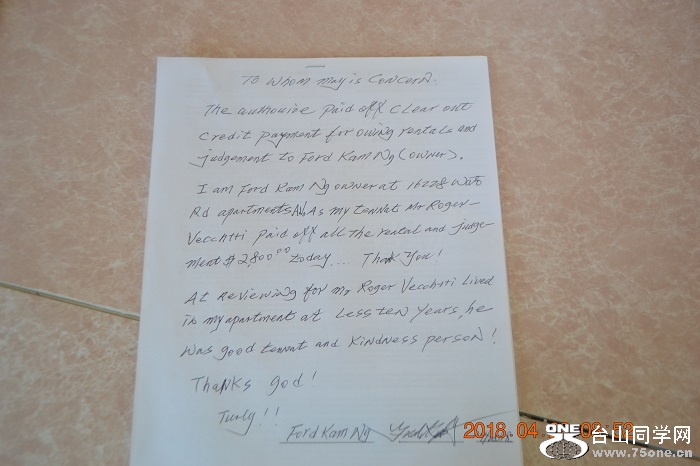 To Whom may is Concern.
The authourize Paid off Clear out
Credit payment for owing rentals and
judgement to Ford Kam Ng (owner).
I am Ford Kam Ng owner at 16228
Rd apartments As my tennat Mr Roger
Vecchtti Paid off all the rental and judge-
ment $ 2,800 00 today... Thank You!
At Reviewing for mr Roger Vecchtti Lived
in my apartment at Less ten years, he
was good tennat and Kindness person!
Thanks god!
Turly!!
Ford Kam Ng
2018.04.
ONE
台山同学网
www.75one.cn